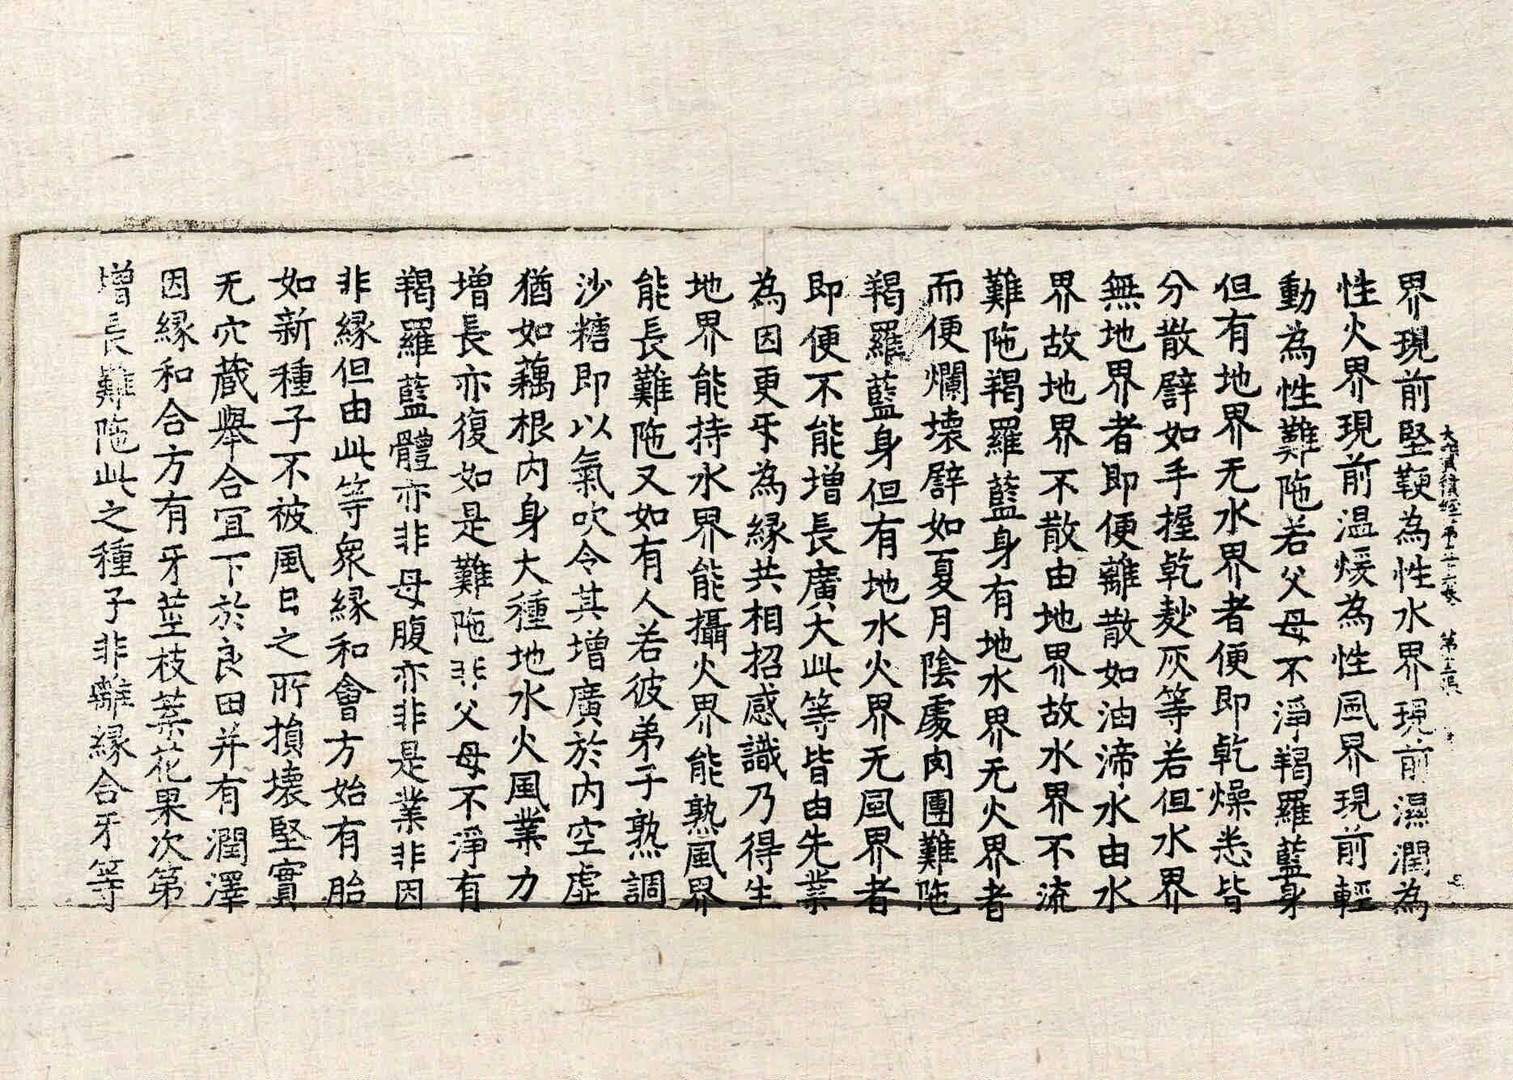 大寶積經第五十六卷 第三張
界現前堅鞕為性水界現前濕潤為
性火界現前温煖為性風界現前輕
動為性難陁若父母不淨羯羅藍身
但有地界无水界者便即乾燥悉皆
分散譬如手握乾麨灰等若但水界
無地界者即便離散如油渧水由水
界故地界不散由地界故水界不流
難陁羯羅藍身有地水界无火界者
而便爛壞譬如夏月陰處肉團難陁
羯羅藍身但有地水火界无風界者
即便不能增長廣大此等皆由先業
為因更㸦為緣共相招感識乃得生
地界能持水界能攝火界能熟風界
能長難陁又如有人若彼弟子熟調
沙糖即以氣吹令其增廣於內空虛
猶如藕根內身大種地水火風業力
增長亦復如是難陁非父母不淨有
羯羅藍體亦非母腹亦非是業非因
非緣但由此等衆緣和會方始有胎
如新種子不被風日之所損壞堅實
无穴藏舉合宜下於良田并有潤澤
因緣和合方有牙莖枝葉花果次第
增長難陁此之種子非離緣合牙等